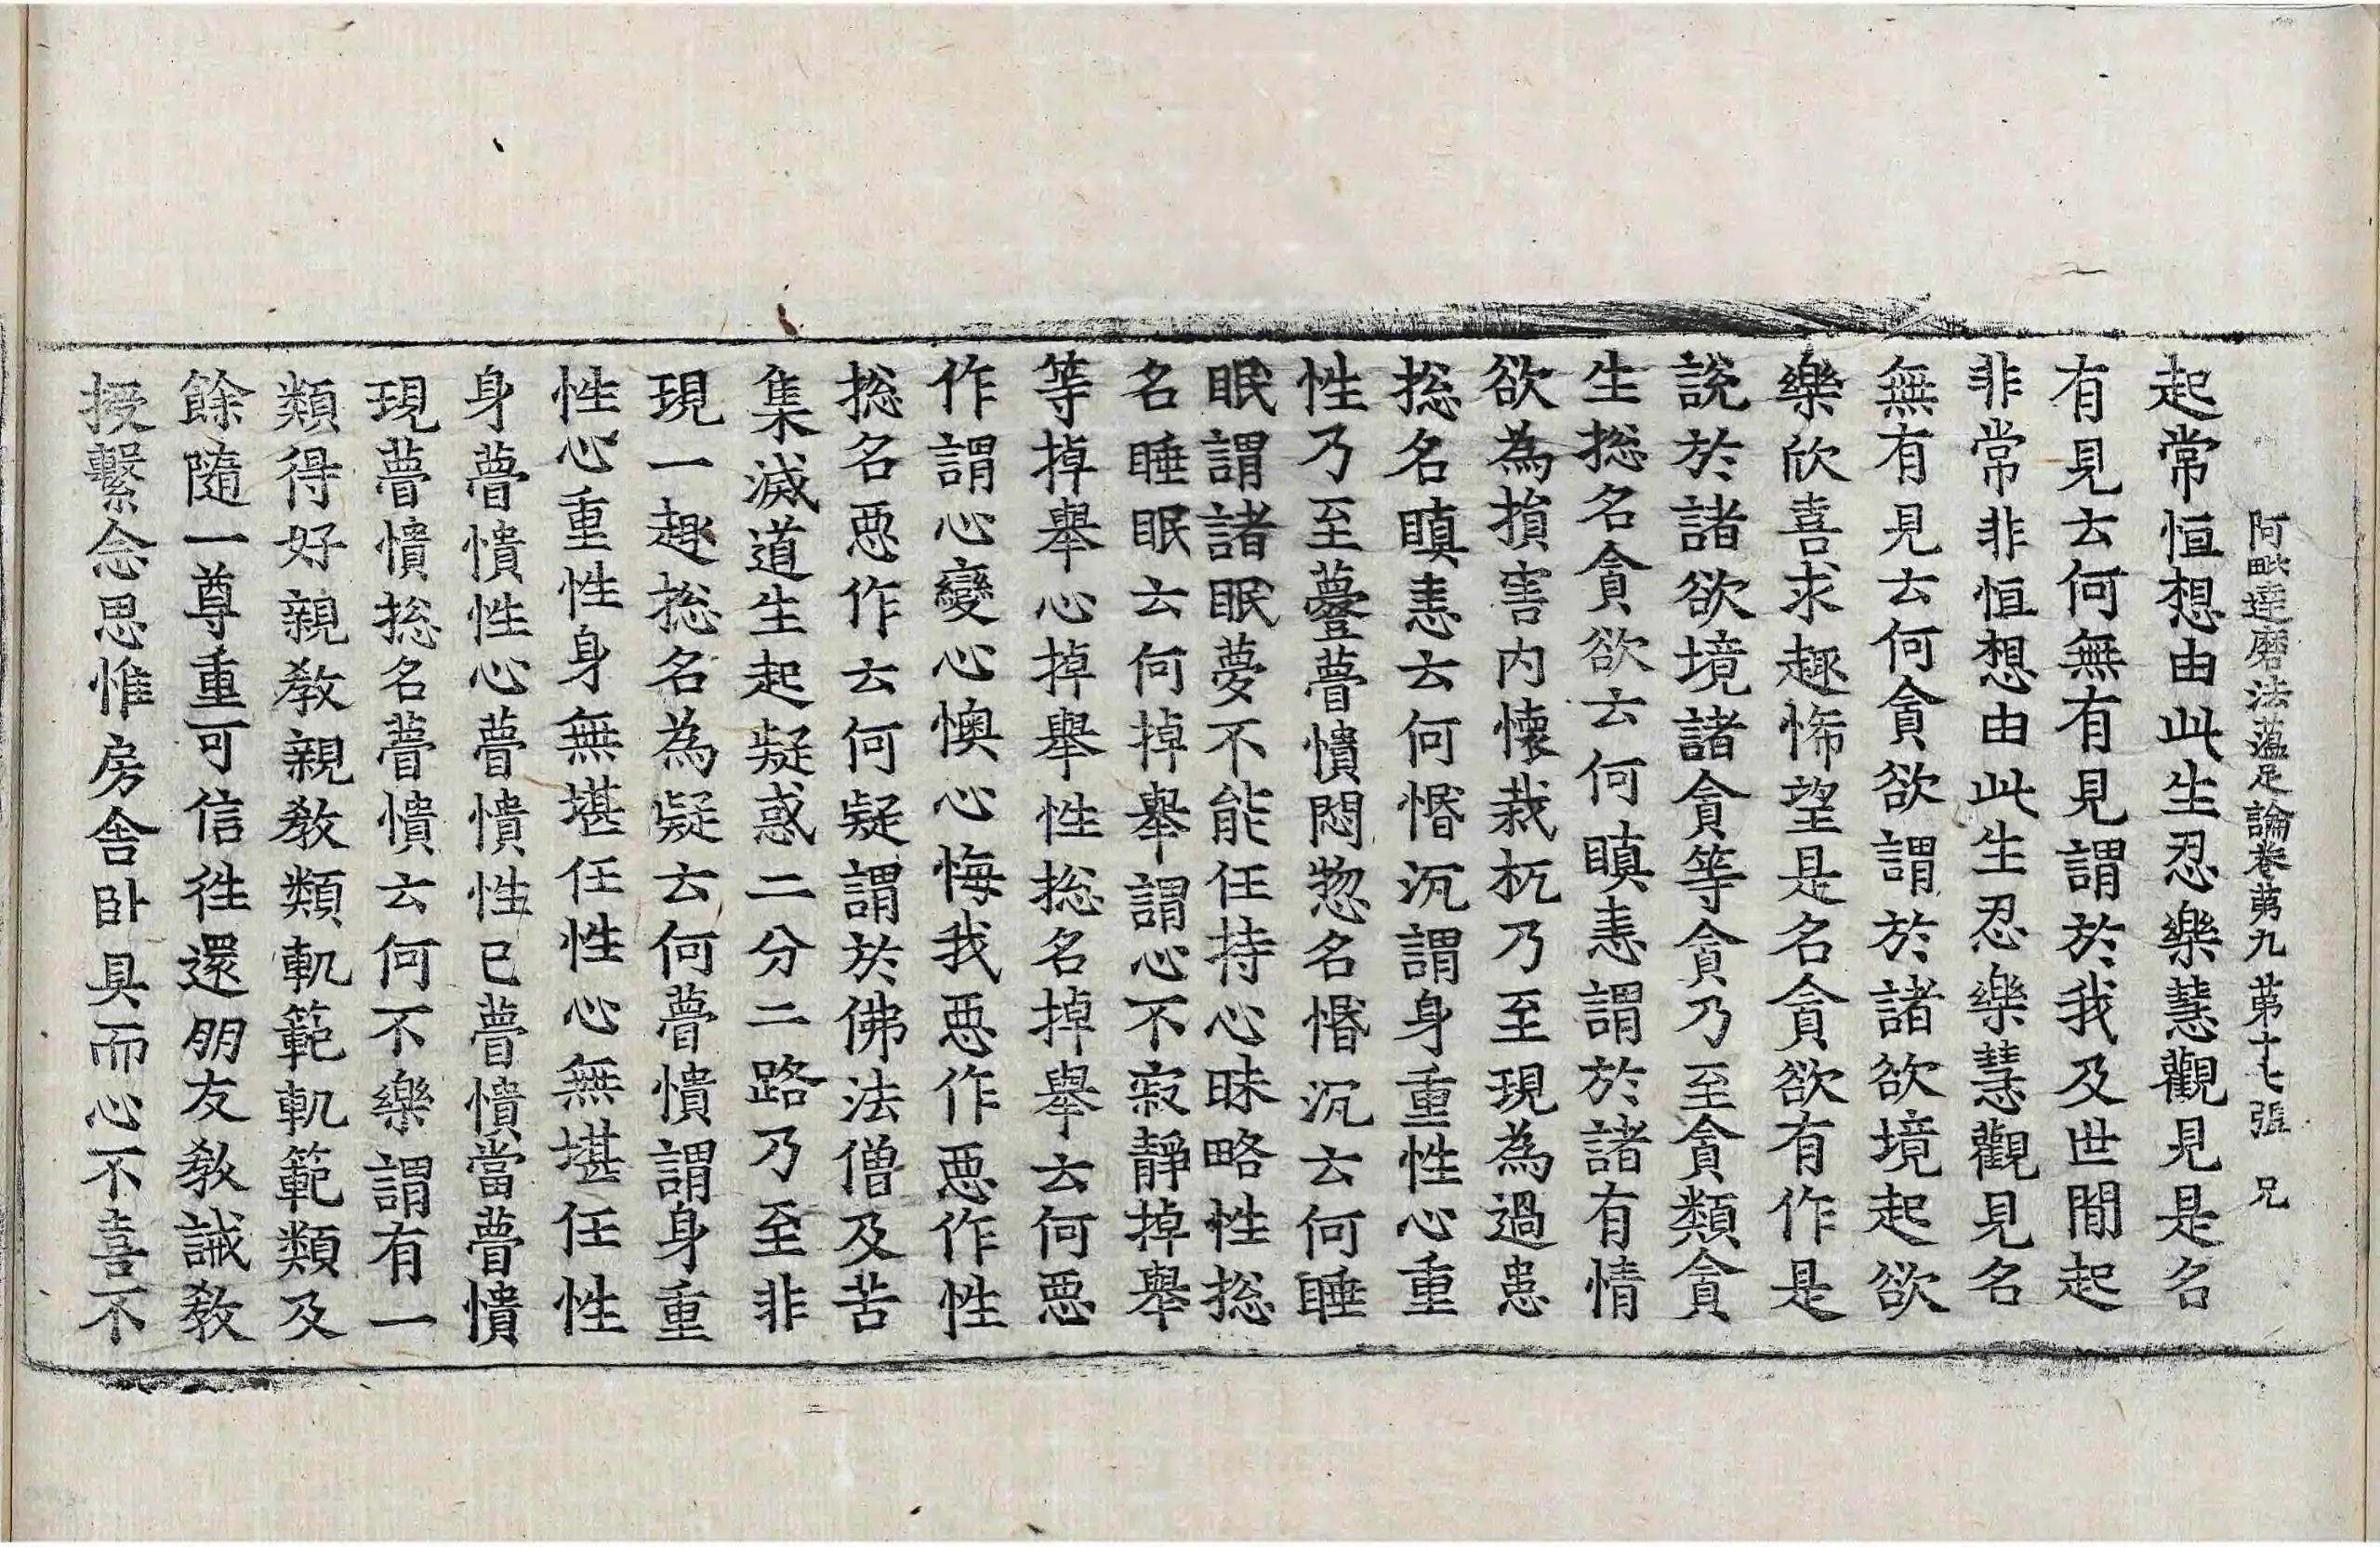 阿毗達磨法蘊足論卷苐九 苐十七張 兄
起常恒想由此生忍樂慧觀見是名
有見云何無有見謂於我及世間起
非常非恒想由此生忍樂慧觀見名
無有見云何貪欲謂於諸欲境起欲
樂欣喜求趣悕望是名貪欲有作是
說於諸欲境諸貪等貪乃至貪類貪
生揔名貪欲云何瞋恚謂於諸有情
欲為損害內懷栽杌乃至現為過患
揔名瞋恚云何惛沉謂身重性心重
性乃至㽎瞢憒悶惣名惛沉云何睡
眠謂諸眠夢不能任持心昧略性揔
名睡眠云何掉舉謂心不寂靜掉舉
等掉舉心掉舉性揔名掉舉云何惡
作謂心變心懊心悔我惡作惡作性
揔名惡作云何疑謂於佛法僧及苦
集滅道生起疑惑二分二路乃至非
現一趣揔名為疑云何瞢憒謂身重
性心重性身無堪任性心無堪任性
身瞢憒性心瞢憒性已瞢憒當瞢憒
現瞢憒揔名瞢憒云何不樂謂有一
類得好親教親教類軌範軌範類及
餘隨一尊重可信徃還朋友教誡教
授繫念思惟房舍卧具而心不喜不